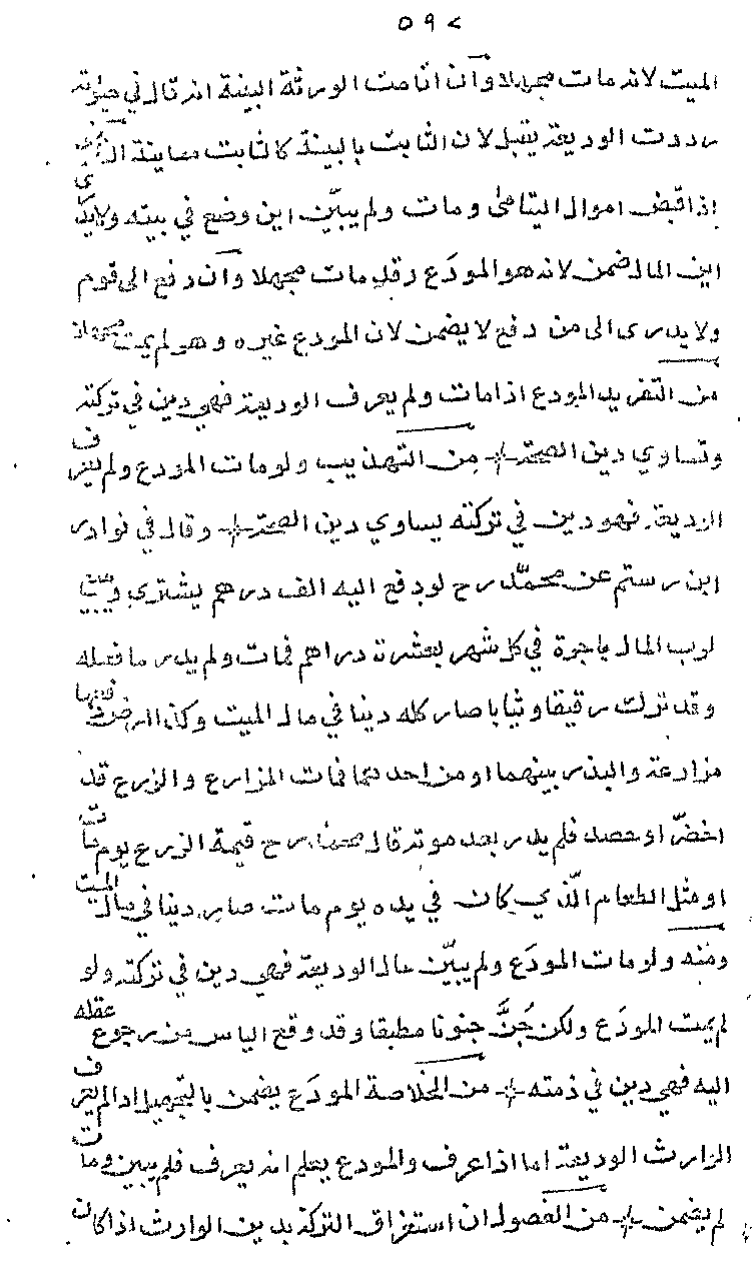 ٥٩٢
الميت لانه مات مجهلا وان اقامت الورثة البينة انه قال في حياته
رددت الوديعة يقبل لان الثابت بالبينة كالثابت معاينة القاضي
إذا قبض اموال اليتامى ومات ولم يبيّن اين وضع في بيته ولا يدري
اين المال ضمن لانه هو المودَع وقد مات مجهلا وان دفع الى قوم
ولا يدرى الى من دفع لا يضمن لان المودع غيره وهو لم يمت مجهلا
من التفريد المودع اذا مات ولم يعرف الوديعة فهي دين في تركته
وتساوي دين الصحة من التهذيب ولو مات المودع ولم يعرف
الوديعة فهو دين في تركته يساوي دين الصحة وقال في نوادر
ابن رستم عن محمّد رح لو دفع اليه الف درهم يشتري ويبيع
لرب المال باجرة في كل شهر بعشرة دراهم فمات ولم يدر ما فعله
وقد ترك رقيقا وثيابا صار كله دينا في مال الميت وكذا ارض دفعها
مزارعة والبذر بينهما او من احدهما فمات المزارع والزرع قد
اخضرّ او حصد فلم يدر بعد موته قال محمد رح قيمة الزرع يوم مات
او مثل الطعام الّذي كان في يده يوم مات صار دينا في مال الميت
ومنه ولو مات المودَع ولم يبيّن حال الوديعة فهي دين في تركته ولو
لم يمت المودَع ولكن جُنَّ جنونا مطبقا وقد وقع الياس من رجوع عقله
اليه فهي دين في ذمته من الخلاصة المودَع يضمن بالتجهيل اذا لم يعرف
الوارث الوديعة اما اذا عرف والمودع يعلم انه يعرف فلم يبين ومات
لم يضمن من الفصول ان استغراق التركة بدين الوارث اذا كان